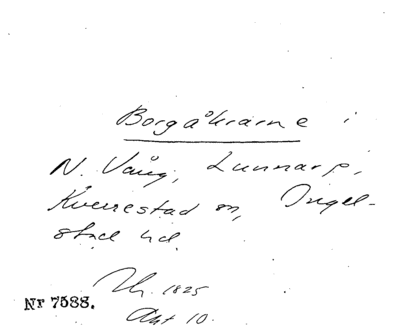 Borgåkrarne i
N. Vång, Lunnarp,
Kverrestad sn, Ingel-
stad hd.
1825
Akt 10.
Nr 7588.